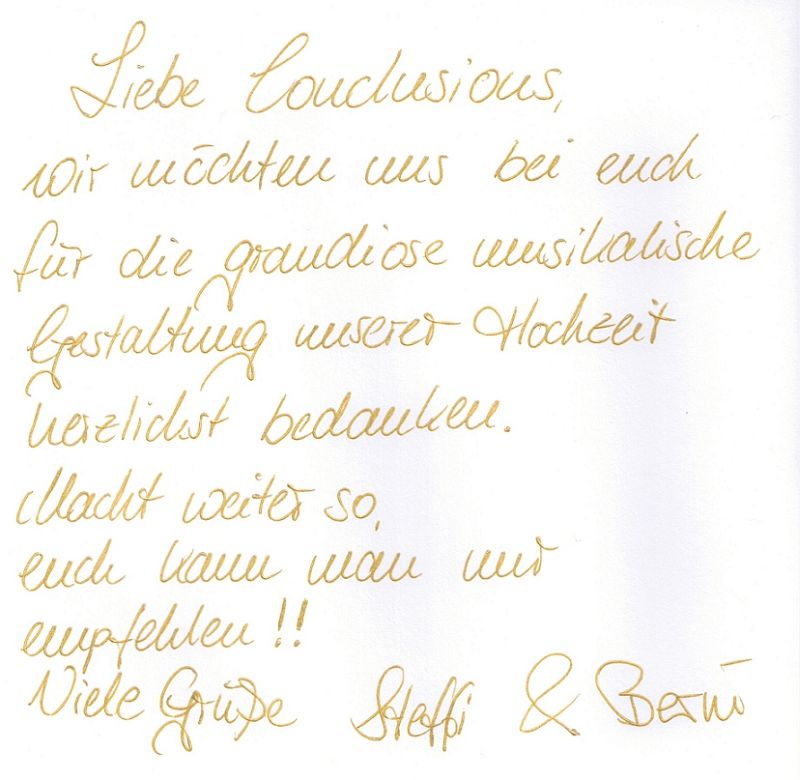 Liebe Conclusions,
wir möchten uns bei euch
für die grandiose musikalische
Gestaltung unserer Hochzeit
herzlichst bedanken.
Macht weiter so,
euch kann man nur
empfehlen!!
Viele Grüße Steffi & Berni